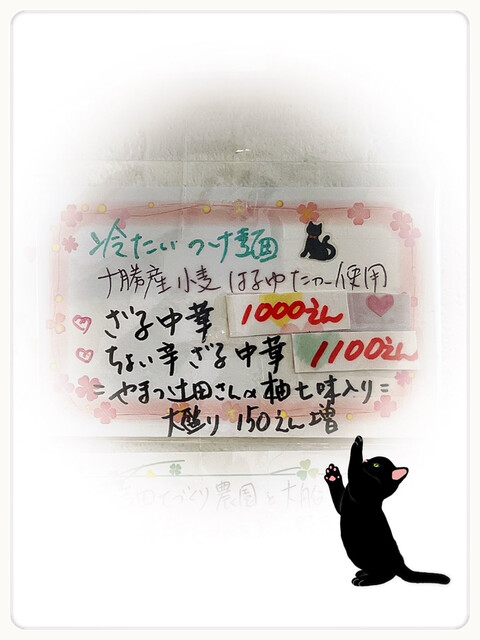 冷たいつけ麺
十勝産小麦 はるゆたか使用
ざる中華 1000えん
ちょい辛ざる中華 1100えん
=やまつ辻田さんの柚七味入り=
大盛り 150えん増
づくり農園と